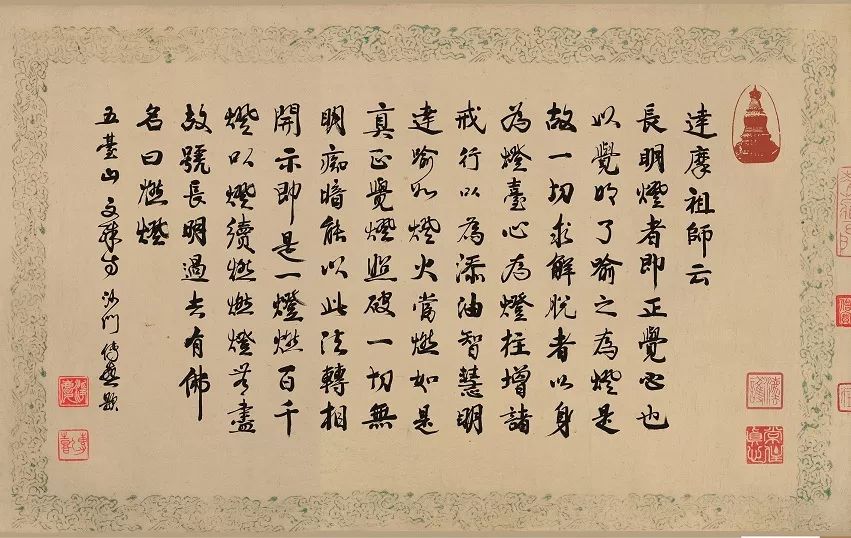 達摩祖師云
長明燈者即正覺心也
以覺明了喻之為燈是
故一切求解脫者以身
為燈臺心為燈炷增諸
戒行以為添油智慧明
達喻如燈火當燃如是
真正覺燈照破一切無
明痴暗能以此法轉相
開示即是一燈燃百千
燈以燈續燃燃燈無盡
故號長明過去有佛
名曰燃燈
五臺山 文殊寺 沙門 傳喜 題